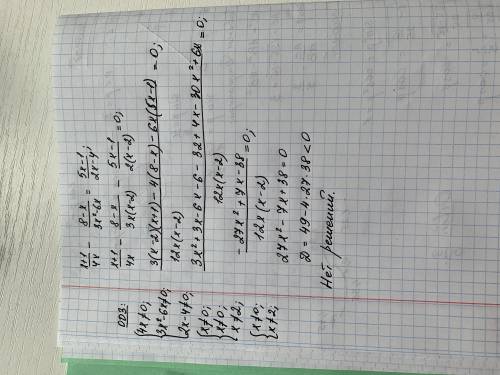 ОДЗ:
{4x≠0;
3x²-6x≠0;
2x-4≠0;
{x≠0;
x≠0;
x≠2;
{x≠0;
x≠2;
x+1/4x - 8-x/3x²-6x = 5x-1/2x-4;
x+1/4x - 8-x/3x(x-2) - 5x-1/2(x-2) = 0;
3(x-2)(x+1)-4(8-x)-6x(5x-1)/12x(x-2) = 0;
3x²+3x-6x-6-32+4x-30x²+6x/12x(x-2) = 0;
-27x²+7x-38/12x(x-2) = 0;
27x²-7x+38=0
D = 49-4·27·38<0
Нет решений.